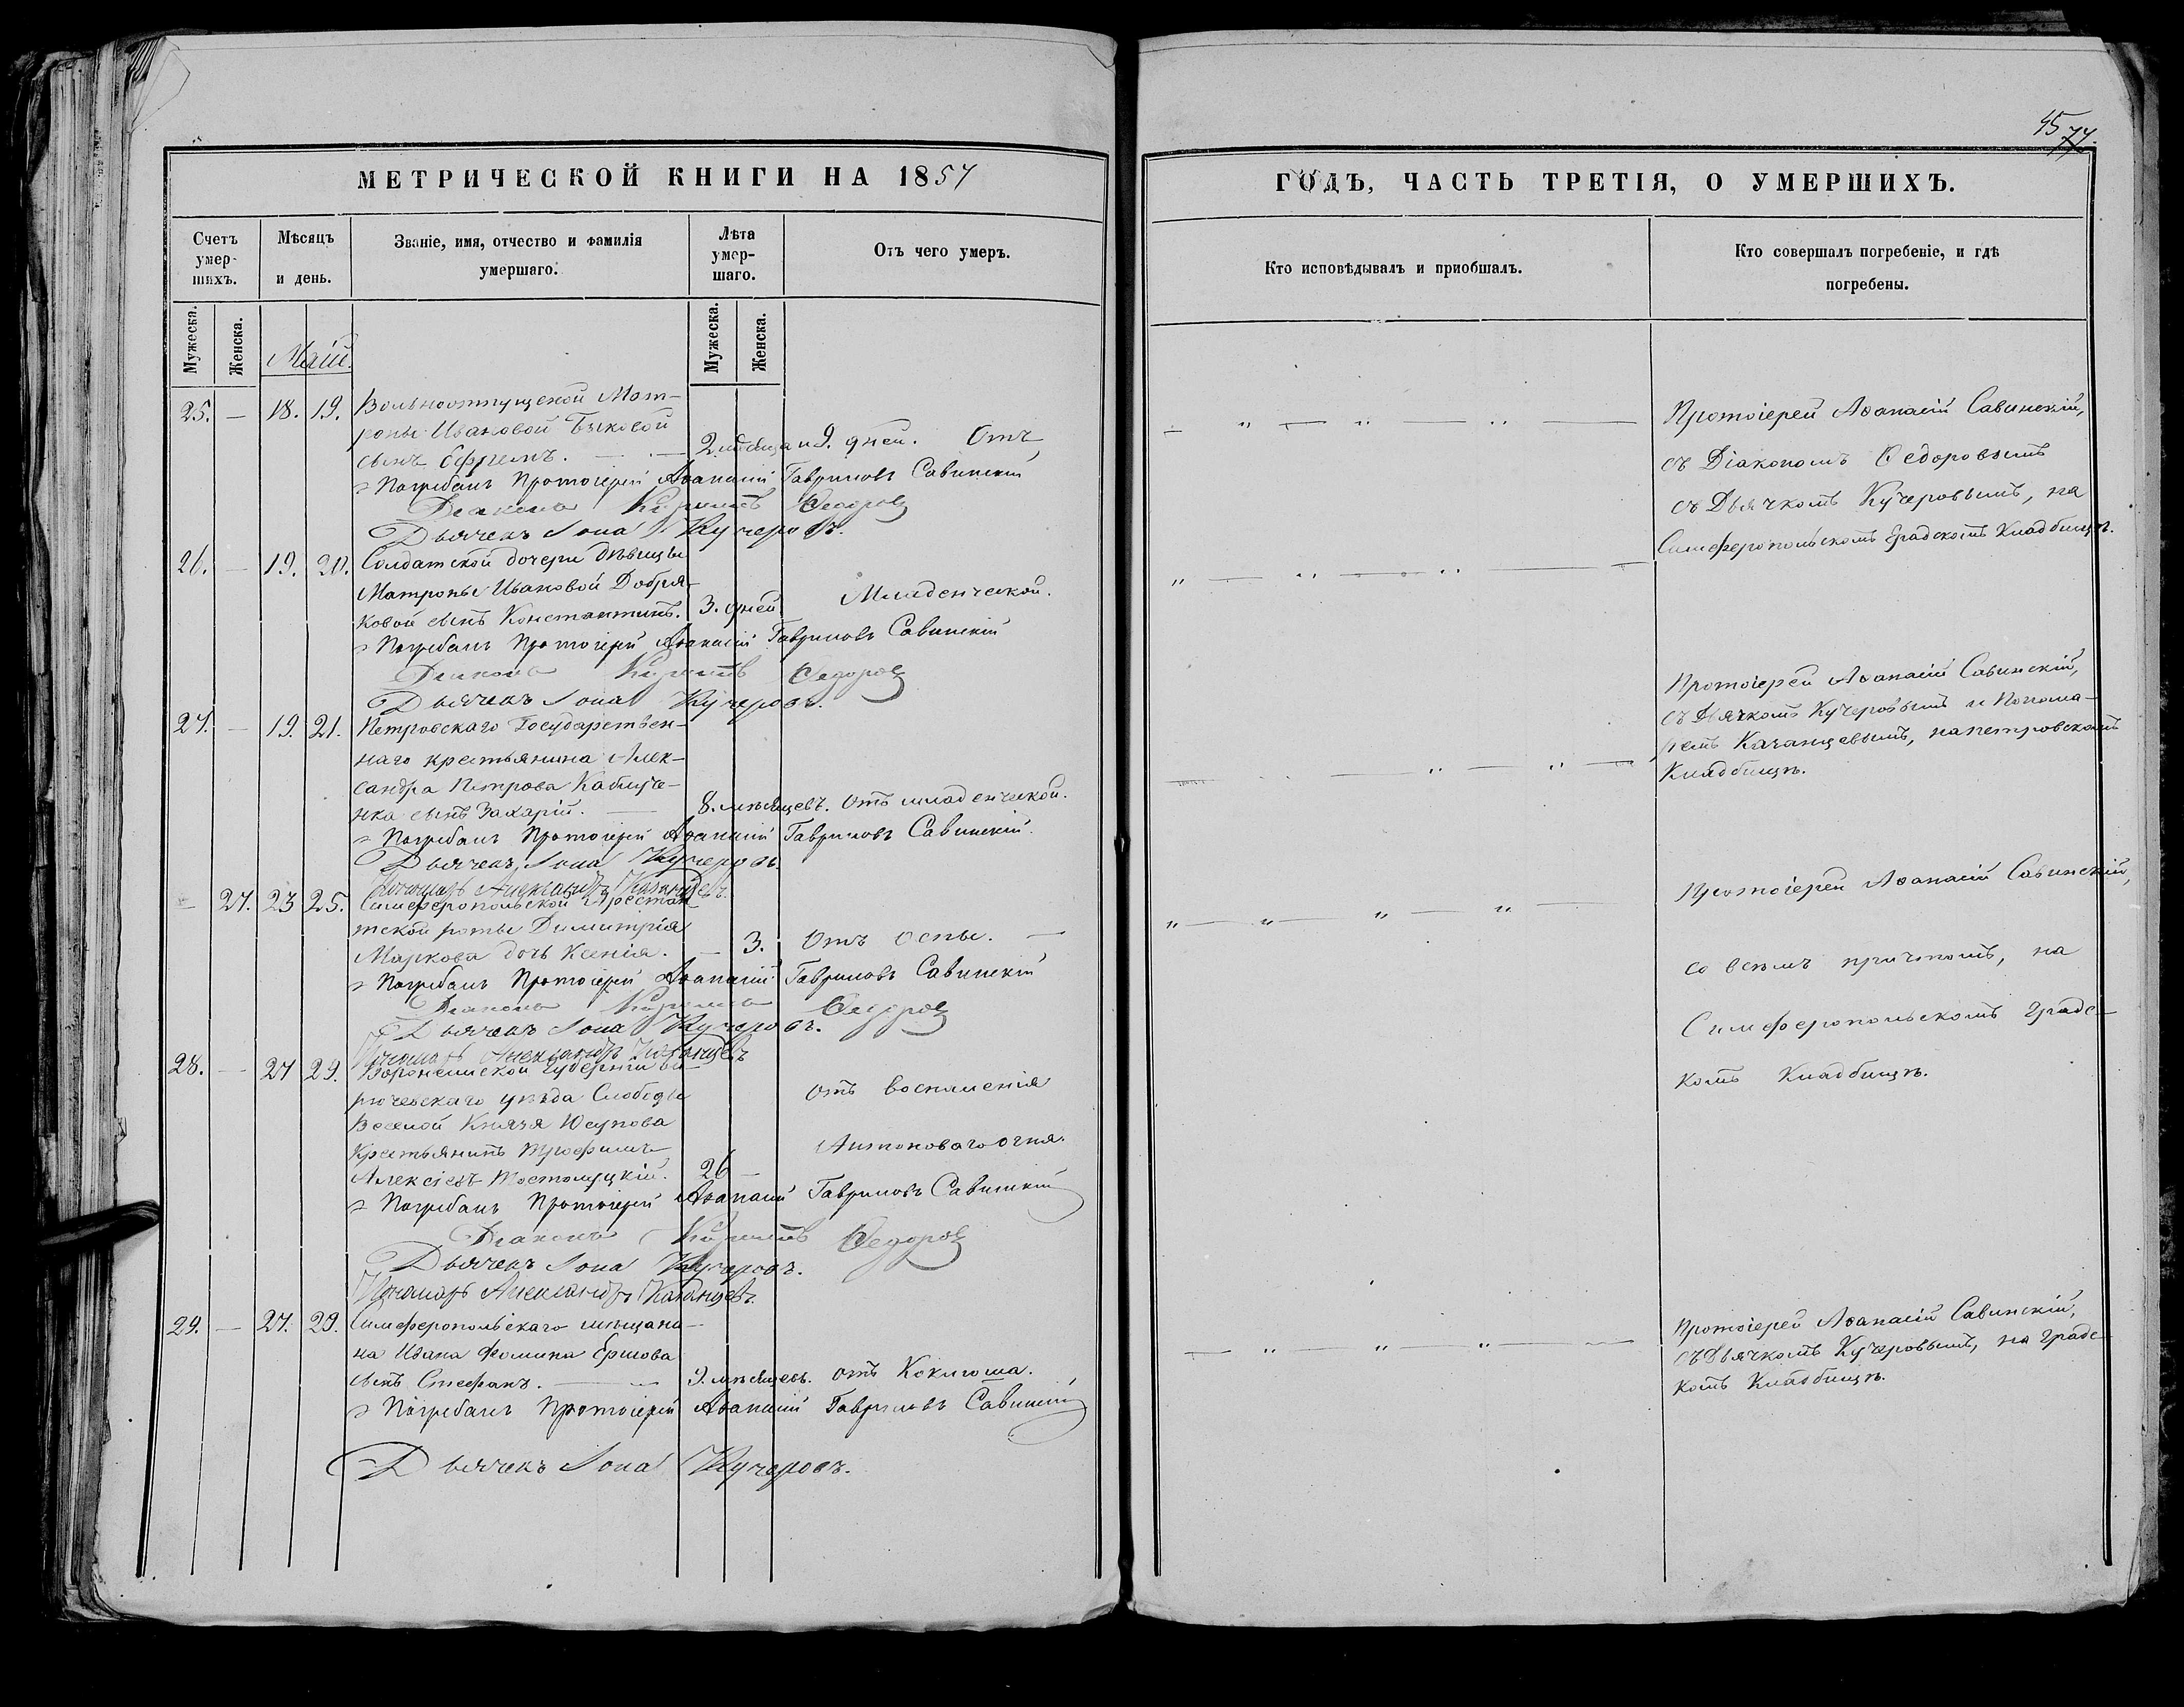 45
77.
МЕТРИЧЕСКОЙ КНИГИ НА 1857
ГОДЪ, ЧАСТЬ ТРЕТІЯ, О УМЕРШИХЪ.
Счетъ умер-шихъ.
Мѣсяцъ и день.
Званіе, имя, отчество и фамилія умершаго.
Лѣта умер-шаго.
Отъ чего умеръ.
Кто исповѣдывалъ и приобщалъ.
Кто совершалъ погребеніе, и гдѣ погребены.
Мужеска. Женска.
Маій.
Мужеска. Женска.
25. — 18. 19. Вольноотпущеной Мат-
роны Ивановой Быковой
сынъ Ефремъ. — 2 мѣсяца и 9. дней. Отъ
Погребалъ Протоіерей Аѳанасій Гавриловъ Савинскій
Діаконъ Кириллъ Ѳедоровъ
Дьячекъ Іона Кучеровъ.
Протоіерей Аѳанасій Савинскій,
съ Діакономъ Ѳедоровымъ
съ Дьячкомъ Кучеровымъ, на
Симферопольскомъ градскомъ Кладбищѣ.
26. — 19. 20. Солдатской дочери дѣвицы
Матроны Ивановой Добря-
ковой сынъ Константинъ. 3. дней Младенческой.
Погребалъ Протоіерей Аѳанасій Гавриловъ Савинскій
Діаконъ Кириллъ Ѳедоровъ
Дьячекъ Іона Кучеровъ.
27. — 19. 21. Петровскаго Государствен-
наго крестьянина Алек-
сандра Петрова
сынъ Захарій. — 8. мѣсяцевъ. Отъ младенческой.
Погребалъ Протоіерей Аѳанасій Гавриловъ Савинскій.
Дьячекъ Іона Кучеровъ.
Пономарь Александръ Казанцевъ.
Протоіерей Аѳанасій Савинскій,
съ Дьячкомъ Кучеровымъ и Понома-
ремъ Казанцевымъ, на петровскомъ
Кладбищѣ.
— 27. 23 25. Симферопольской Арестан
тской роты Димитрія
Маркова дочь Ксенія. — 3. Отъ оспы. —
Погребалъ Протоіерей Аѳанасій Гавриловъ Савинскій
Діаконъ Кириллъ Ѳедоровъ
Дьячекъ Іона Кучеровъ.
Пономарь Александръ Казанцевъ
Протоіерей Аѳанасій Савинскій,
со всемъ причтомъ, на
Симферопольскомъ градс-
комъ Кладбищѣ.
28. — 27 29. Воронежской Губерніи Би
рюченскаго уѣзда Слободы
Веселой Князя Юсупова
Крестьянинъ Трофимъ
Алексіевъ 26 —
отъ воспаленія
Антоноваго огня.
Погребалъ Протоіерей Аѳанасій Гавриловъ Савинскій
Діаконъ Кириллъ Ѳедоровъ
Дьячекъ Іона Кучеровъ.
Пономарь Александръ Казанцевъ.
29. — 27. 29. Симферопольскаго мѣщани-
на Ивана Фомина Ершова
сынъ Стефанъ. — 9. мѣсяцевъ. отъ Коклюша.
Погребалъ Протоіерей Аѳанасій Гавриловъ Савинскій
Дьячекъ Іона Кучеровъ.
Протоіерей Аѳанасій Савинскій,
съ Дьячкомъ Кучеровымъ, на градс-
комъ Кладбищѣ.